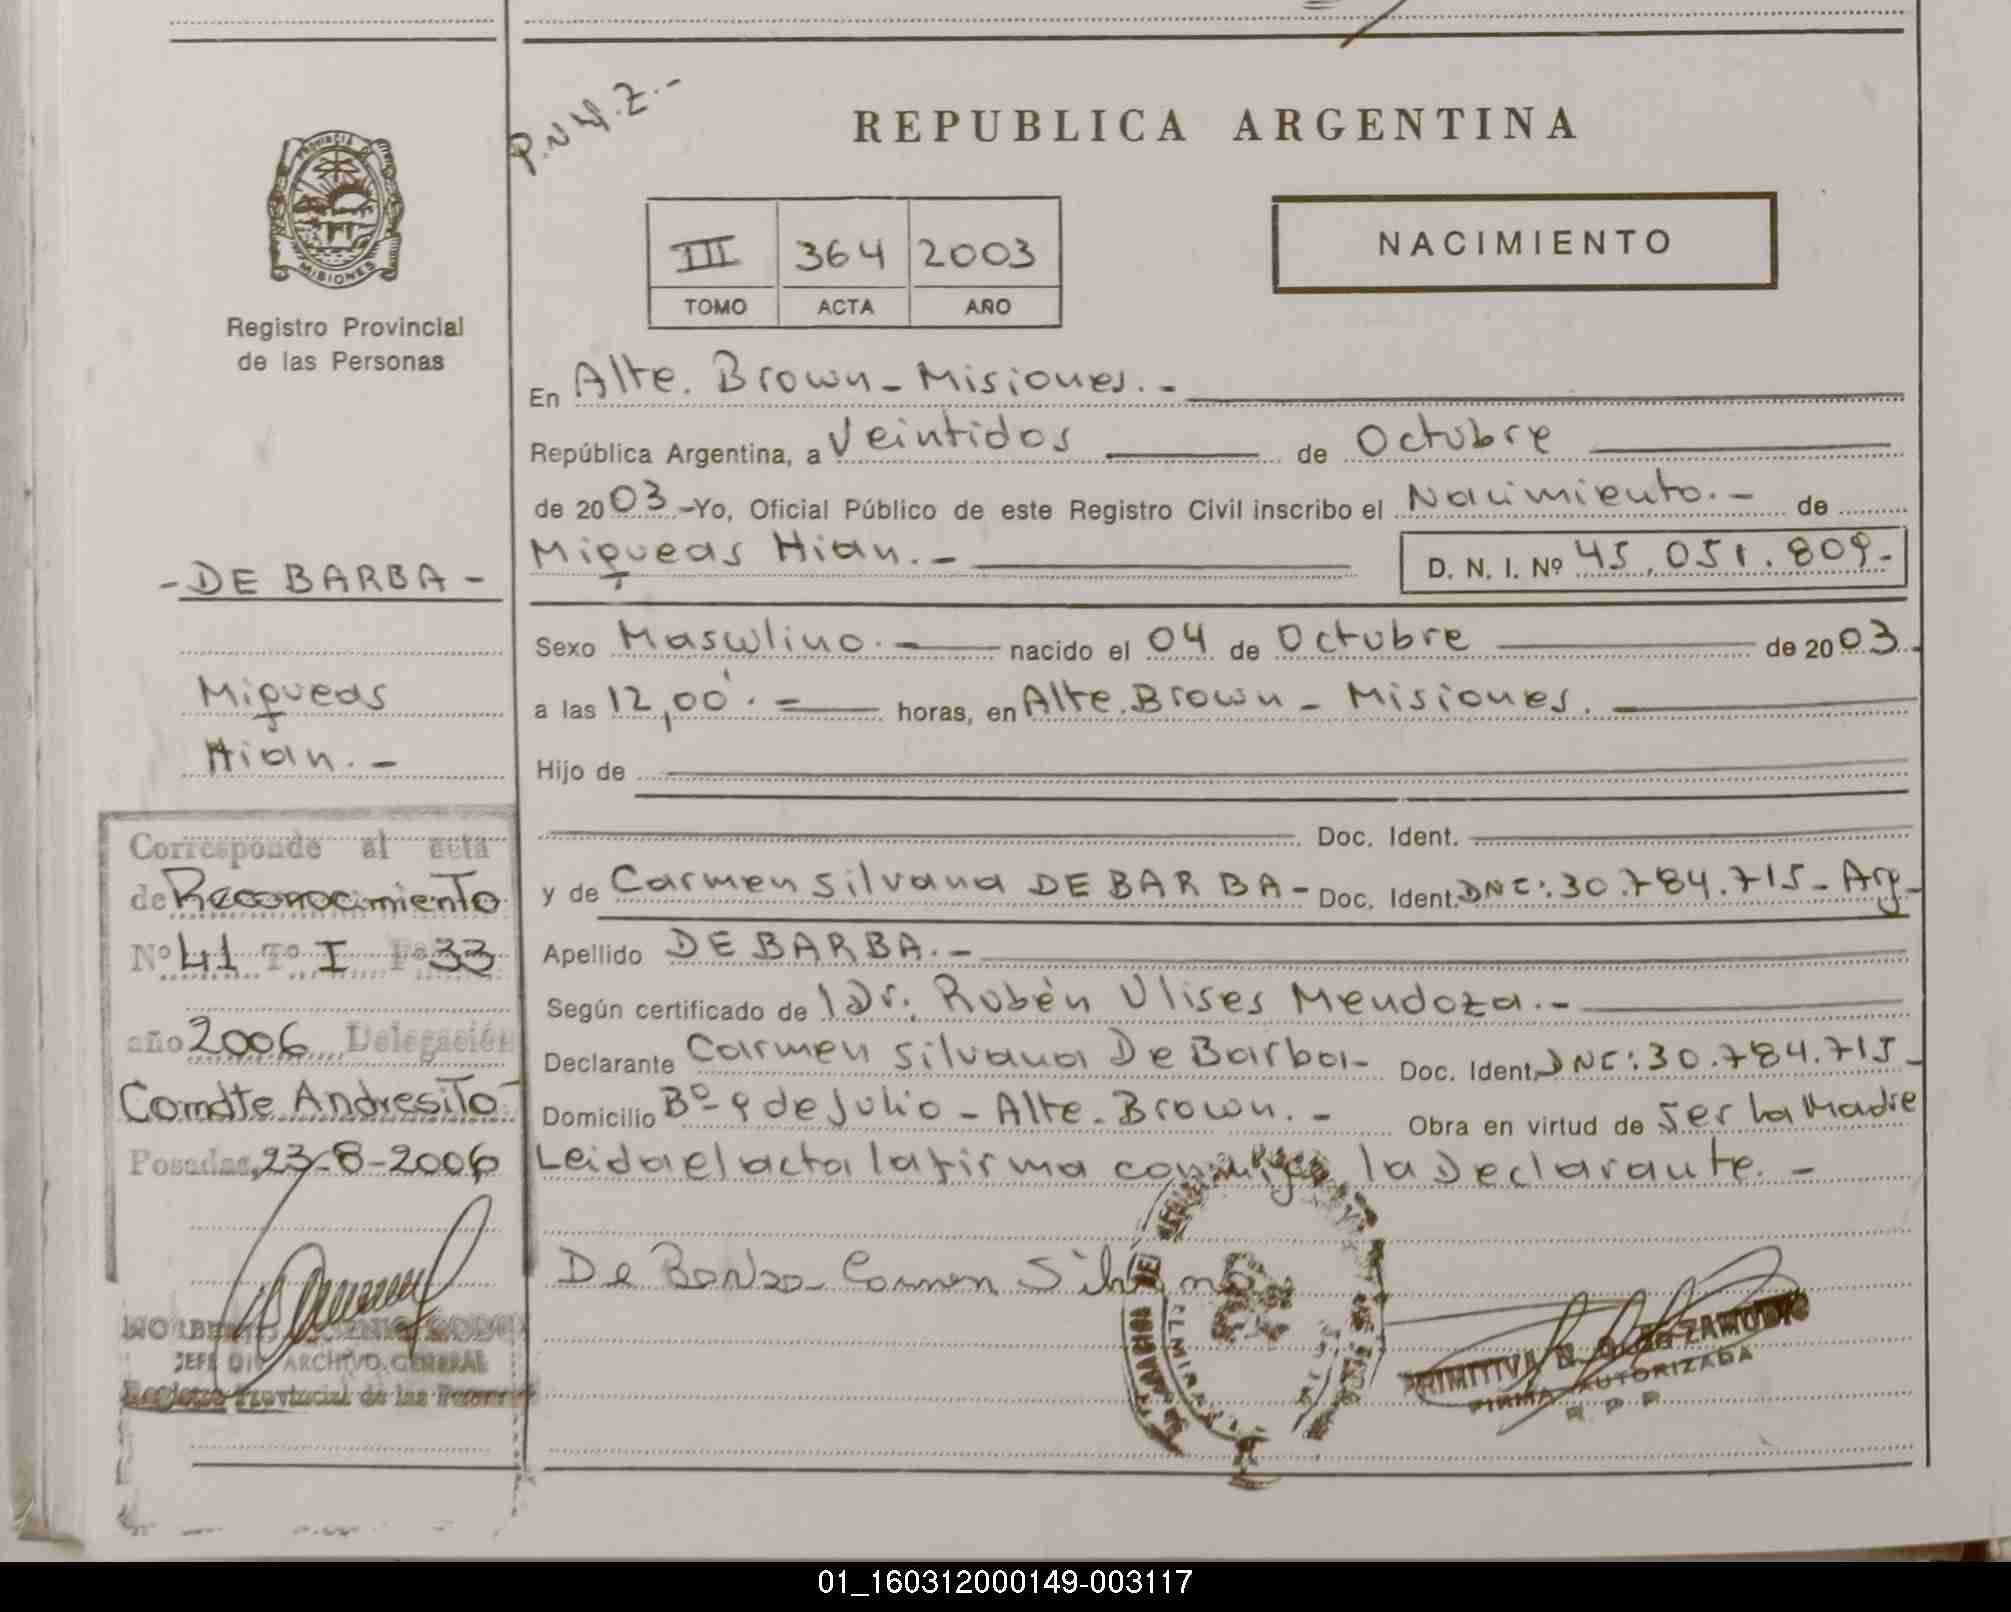 P.N.y.Z.-
REPUBLICA ARGENTINA
PROVINCIA DE
MISIONES
Registro Provincial
de las Personas
III 364 2003
TOMO ACTA AÑO
NACIMIENTO
En Alte. Brown - Misiones. -
República Argentina, a Veintidos de Octubre
de 2003.-Yo, Oficial Público de este Registro Civil inscribo el Nacimiento. - de
Miqueas Hian. - D. N. I. Nº 45.051.809.-
- DE BARBA -
Miqueas
Hian. -
Sexo Masculino. - nacido el 04 de Octubre de 2003.
a las 12,00'. - horas, en Alte. Brown - Misiones.
Hijo de
Doc. Ident.
y de Carmen Silvana DE BARBA - Doc. Ident. DNI: 30.784.715 - Arg -
Apellido DE BARBA. -
Según certificado de Dr. Rubén Ulises Mendoza. -
Declarante Carmen Silvana De Barba - Doc. Ident. DNI: 30.784.715 -
Domicilio Bº 9 de Julio - Alte. Brown. - Obra en virtud de Ser La Madre
Leida el acta la firma conmigo la Declarante. -
De Barba Carmen Silvana
Corresponde al acta
de Reconocimiento
Nº 41 Tº I Fº 33
año 2006 Delegación
Comdte Andresito
Posadas, 23-8-2006
JEFE DIV ARCHIVO GENERAL
Registro Provincial de las Personas
PRIMITIVA N. ZAMUDIO
FIRMA AUTORIZADA
R P P
01_160312000149-003117